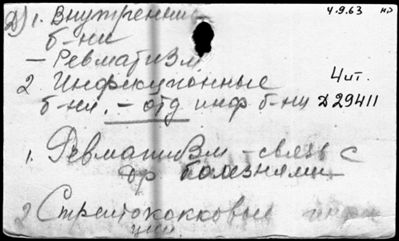 Д) 1. Внутренние 4.9.63
б-ни
– Ревматизм
2 Инфекционные 4 ит.
б-ни. – отд инф б-ни Д 29411
1. Ревматизм – связь с
др болезнями
2 Стрептококковые инфек
ции